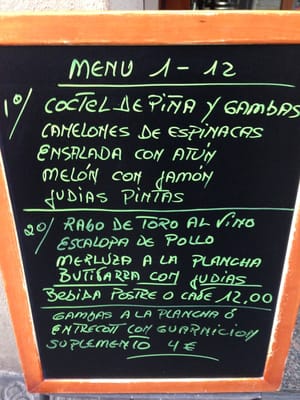 MENU 1-12
1º/ COCTEL DE PIÑA Y GAMBAS
CANELONES DE ESPINACAS
ENSALADA CON ATÚN
MELÓN CON JAMÓN
JUDIAS PINTAS
2º/ RABO DE TORO AL VINO
ESCALOPA DE POLLO
MERLUZA A LA PLANCHA
BUTIFARRA CON JUDIAS
BEBIDA POSTRE O CAFE 12,00
GAMBAS A LA PLANCHA Ó
ENTRECOTT CON GUARNICION
SUPLEMENTO 4€